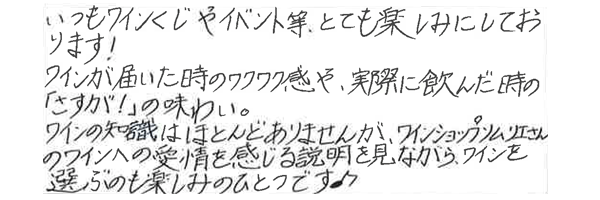 いつもワインくじやイベント等、とても楽しみにしてお
ります!
ワインが届いた時のワクワク感や、実際に飲んだ時の
「さすが!」の味わい。
ワインの知識はほとんどありませんが、ワインショップソムリエさん
のワインへの愛情を感じる説明を見ながら、ワインを
選ぶのも楽しみのひとつです♪